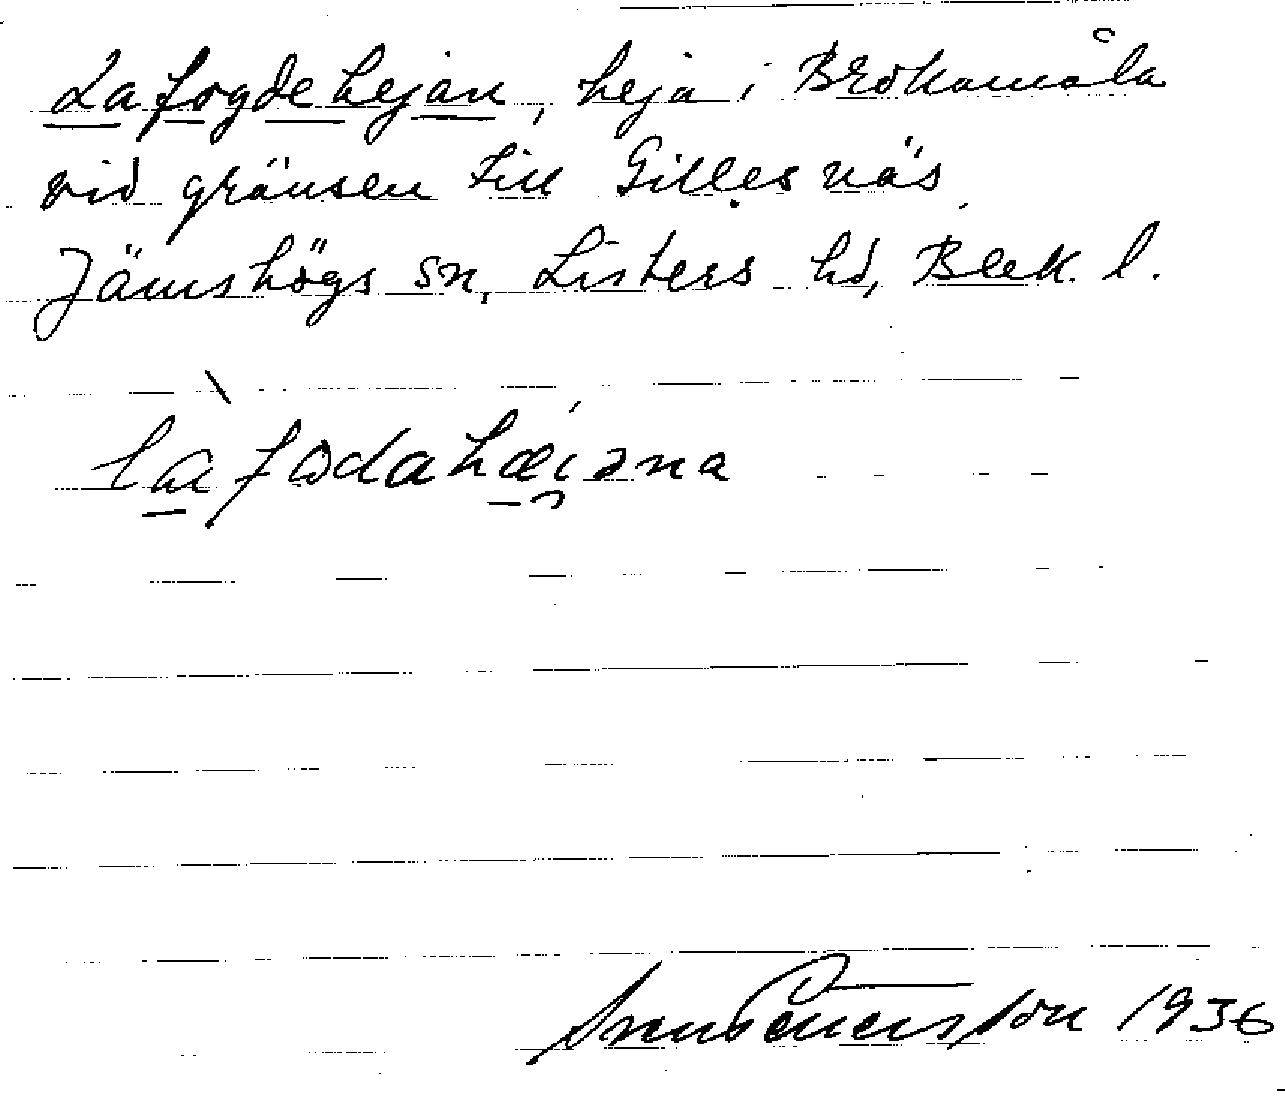 Lafogdehejan, heja i Brokamåla
vid gränsen till Gillesnäs,
Jämshögs sn, Listers hd, Blek. l.
làfɷdahæ̱i̯əna
1936